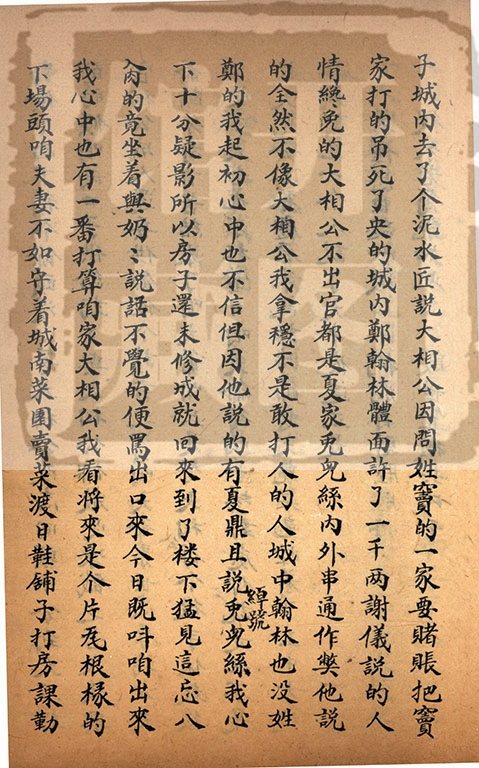 子城内去了个泥水匠説大相公因問姓竇的一家要賭賬把竇
家打的吊死了央的城内鄭翰林體面許了一千両謝儀説的人
情終免的大相公不出官都是夏家兎兒絲内外串通作獘他説
的全然不像大相公我拿穩不是敢打人的人城中翰林也没姓
鄭的我起初心中也不信但因他説的有夏鼎且説兎兒絲我心
綽號
下十分疑影所以房子還未修成就回來到了楼下猛見這忘八
肏的竟坐着與奶〻説話不覺的便罵出口來今日既呌咱出來
我心中也有一番打算咱家大相公我看將來是个片瓦根椽的
下場頭咱夫妻不如守着城南菜園賣菜渡日鞋舖子打房課勤